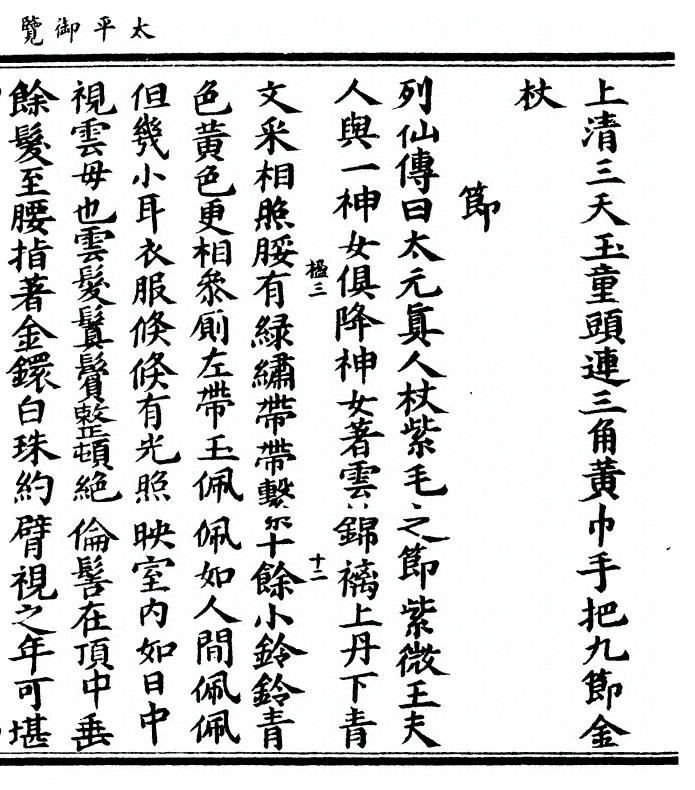 太平御覽
上清三天玉童頭連三角黃巾手把九節金
杖
節
列仙傳曰太元真人杖紫毛之節紫微王夫
人與一神女俱降神女著雲錦襹上丹下青
楹三
十二
文采相照腰有綠繡帶帶繫十餘小鈴鈴青
色黃色更相叅廁左帶玉佩佩如人間佩佩
但幾小耳衣服倏倏有光照映室内如日中
視雲母也雲髮鬒鬢整頓絶倫髻在頂中垂
餘髮至腰指著金鐶白珠約臂視之年可堪